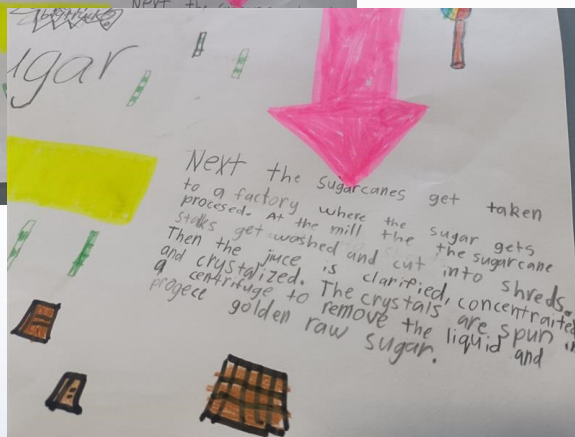 Next the su
ugar
Next the sugarcanes get taken
to a factory where the sugar gets
procesed. At the mill the the sugarcane
stalks get washed and cut into shreds.
Then the juce is clarified, concentraited
and crystalized. The crystals are spun in
a centrifuge to remove the liquid and
progece golden raw sugar.